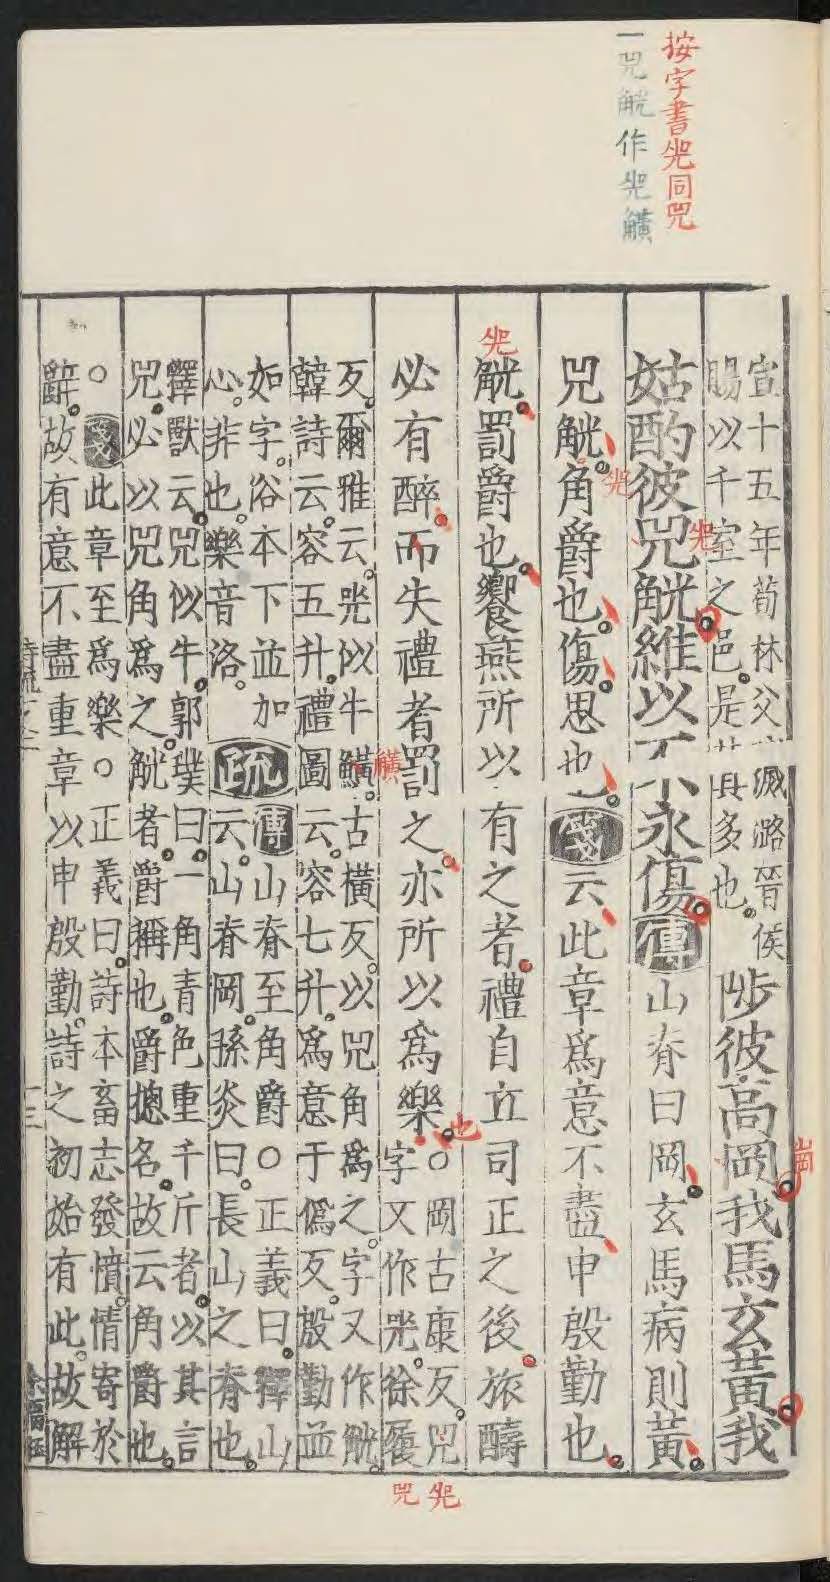 按字書𠒅同兕
一兕觥作𠒅觵
宣十五年荀林父滅潞晉侯
賜以千室之邑是其多也
陟彼高岡我馬玄黃我
姑酌彼兕觥維以不永傷傳山脊曰岡玄馬病則黃
兕觥角爵也傷思也箋云此章爲意不盡申殷勤也
觥罰爵也饗燕所以有之者禮自立司正之後旅醻
必有醉而失禮者罰之亦所以爲樂
也
○岡古康反兕
字又作兕徐履
反爾雅云兕似牛觵古橫反以兕角爲之字又作觥
韓詩云容五升禮圖云容七升爲意于僞反殷勤並
如字俗本下並加
心非也樂音洛
疏
傳山脊至角爵○正義曰釋山
云山脊岡孫炎曰長山之脊也
釋獸云兕似牛郭璞曰一角青色重千斤者以其言
兕必以兕角爲之觥者爵稱也爵揔名故云角爵也
○箋此章至爲樂○正義曰詩本畜志發憤情寄於
辭故有意不盡重章以申殷勤詩之初始有此故解
兕𠒅